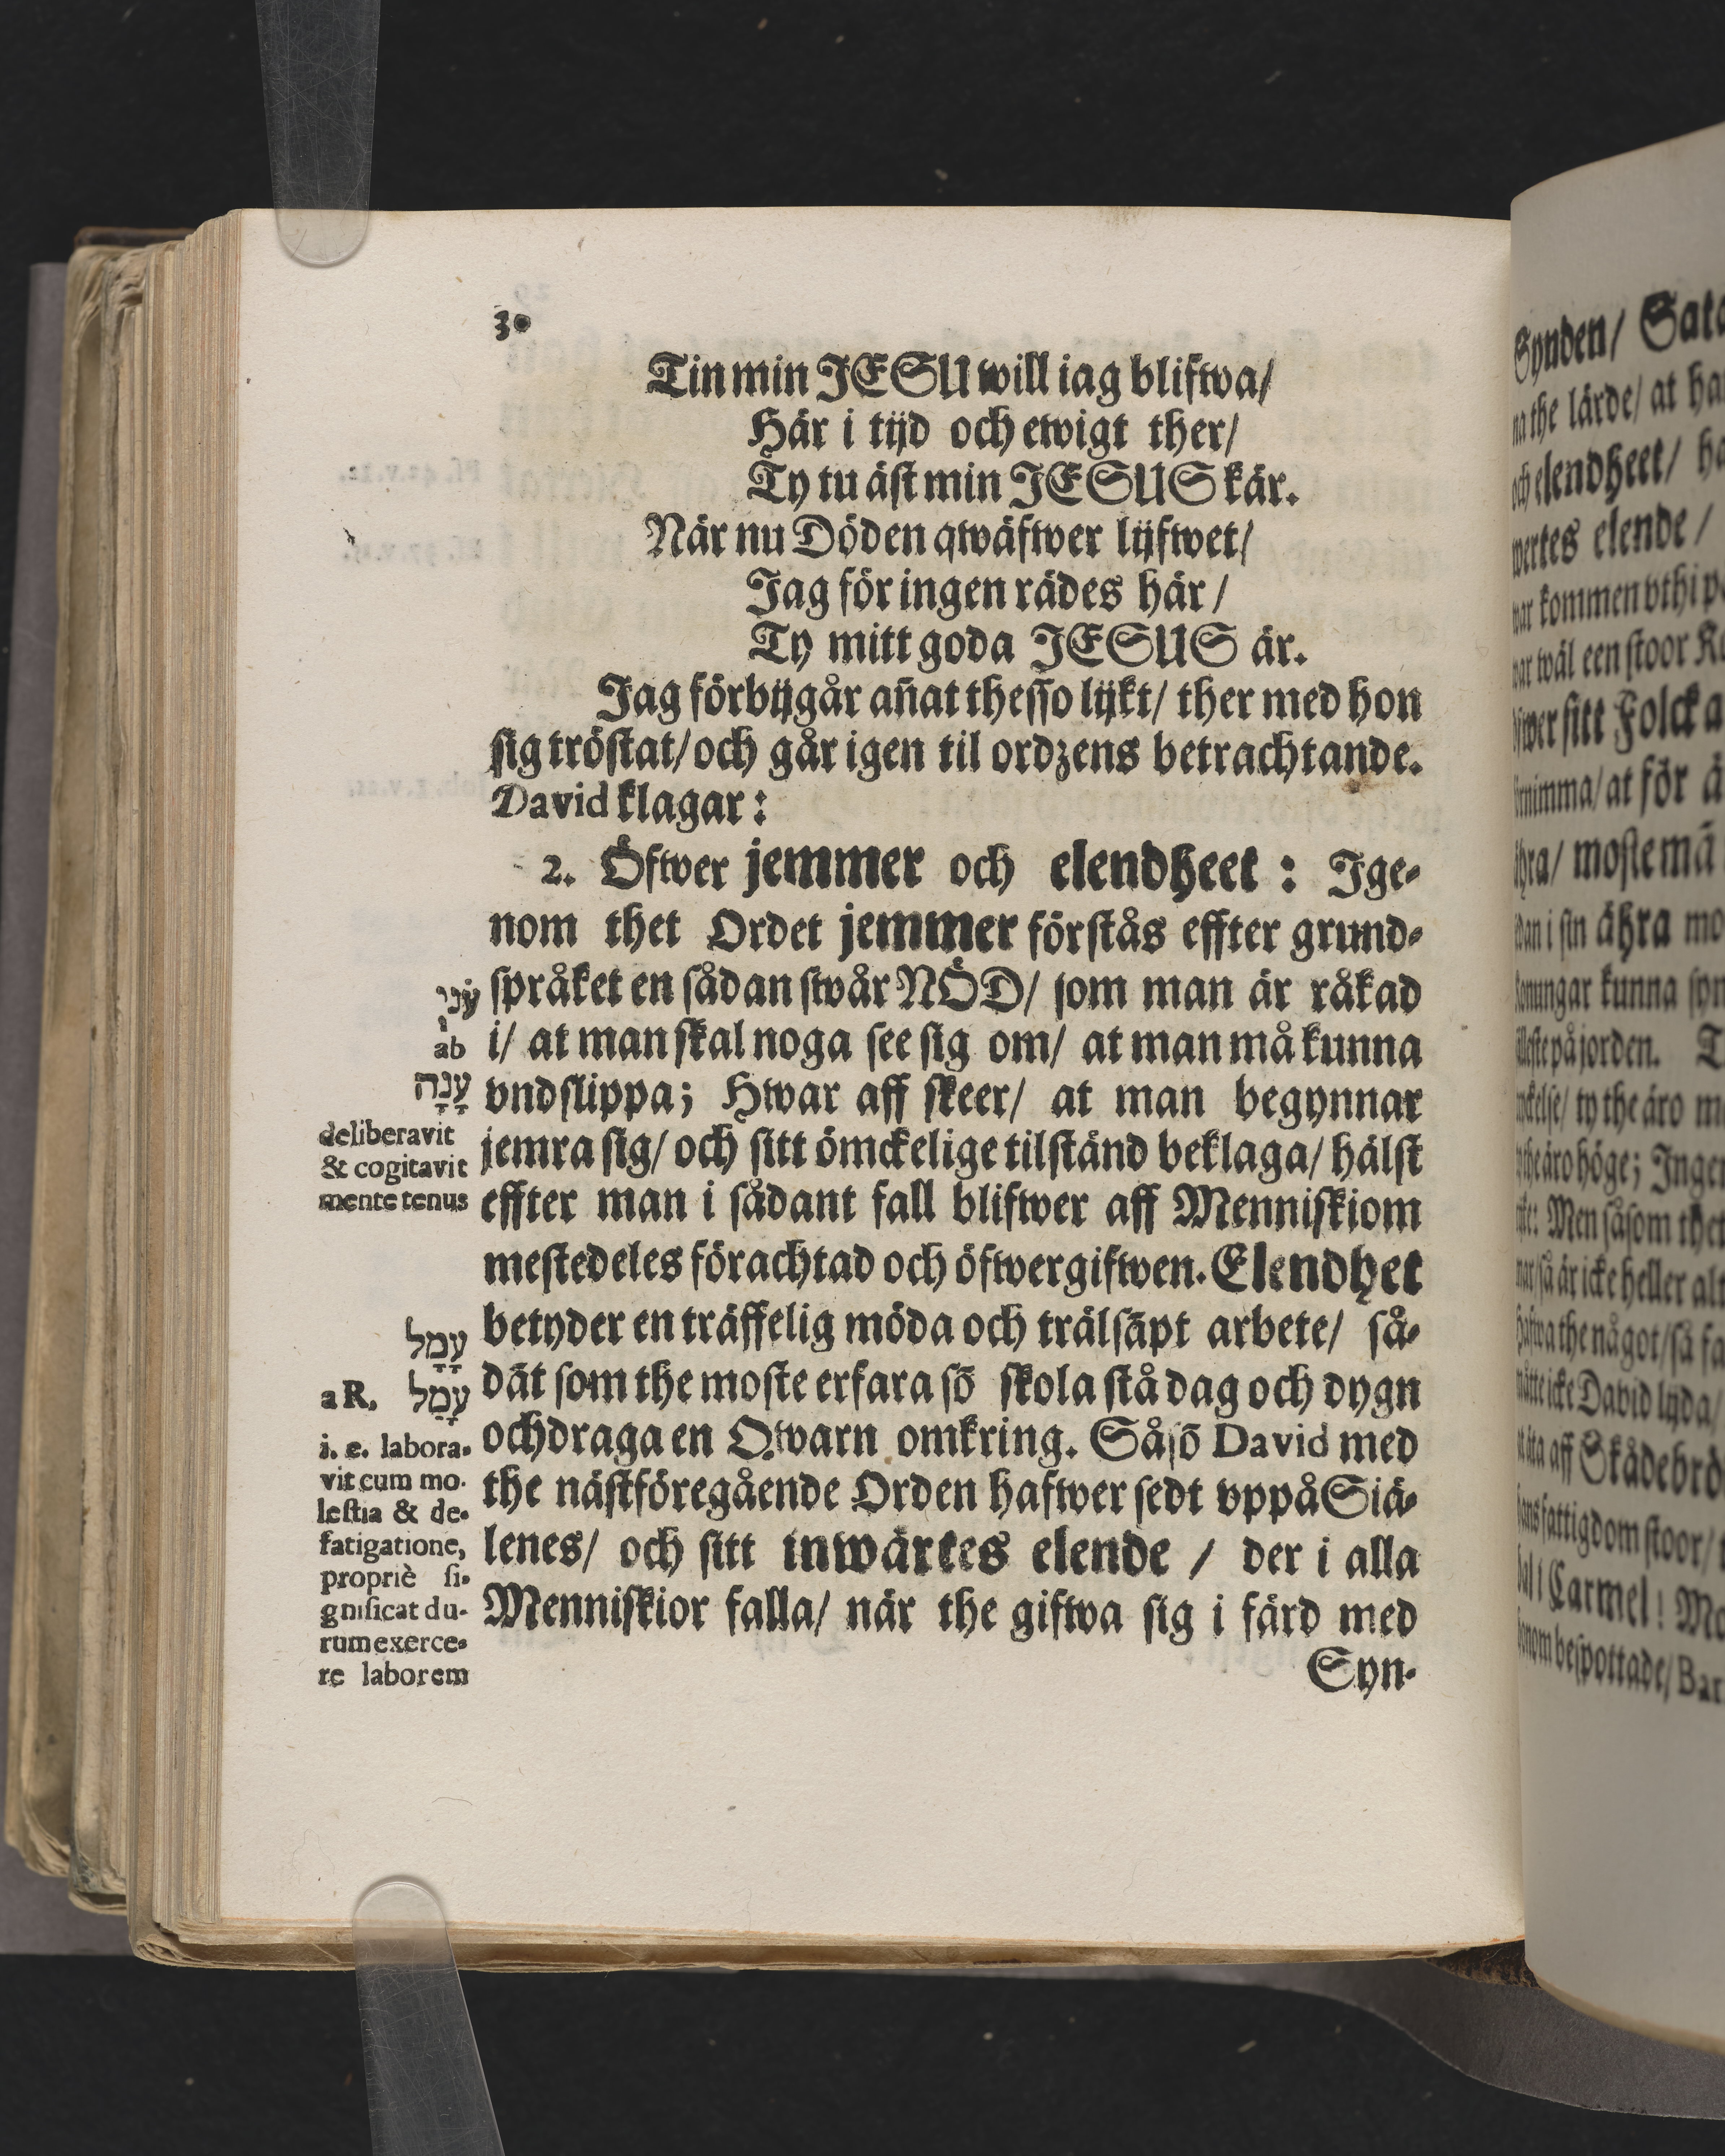 30
Tin min JESU will iag blifwa/
Här i tijd och ewigt ther/
Ty tu äst min JESUS kär.
När nu Döden qwäfwer lijfwet/
Jag för ingen rädes här/
Ty mitt goda JESUS är.
Jag förbijgår an̄at thesso lijkt/ ther med hon
sig tröstat/ och går igen til ordzens betrachtande.
David klagar:
2. Öfwer jemmer och elendheet: Ige-
nom thet Ordet jemmer förstås effter grund-
språket en sådan swår NÖD/ som man är råkad
i/ at man skal noga see sig om/ at man må kunna
vndslippa; Hwar aff skeer/ at man begynnar
jemra sig/ och sitt ömckelige tilstånd beklaga/ hälst
effter man i sådant fall blifwer aff Menniskiom
mestedeles förachtad och öfwergifwen. Elendhet
betyder en träffelig möda och trälsāpt arbete/ så-
dāt som the moste erfara sō skola stå dag och dygn
och draga en Qwarn omkring. Såsō David med
the nästföregående Orden hafwer sedt vppå Siä-
lenes/ och sitt inwärtes elende / der i alla
Menniskior falla/ när the gifwa sig i färd med
Syn-
עֳנִי
ab
עָנָה
deliberavit
& cogitavit
mente tenus
עָמָל
a R. עָמַל
i. e. labora-
vit cum mo-
lestia & de-
fatigatione,
propriè si-
gnificat du-
rum exerce-
re laborem
Synden/
na the lärde/ at
och elendheet/
wertes elende /
war kommen vthi
war wäl een stoor
öfwer sitt Folck
förnimma/ at för
ähra/ moste
dan i sin ähra
Konungar kunna
på jorden.
ty the äro
the äro höge;
Men såsom thet
så är icke heller
hafwa the något/ så
måtte icke David lyda/
äta aff
hans fattigdom stoor/
Carmel!
honom bespottade/